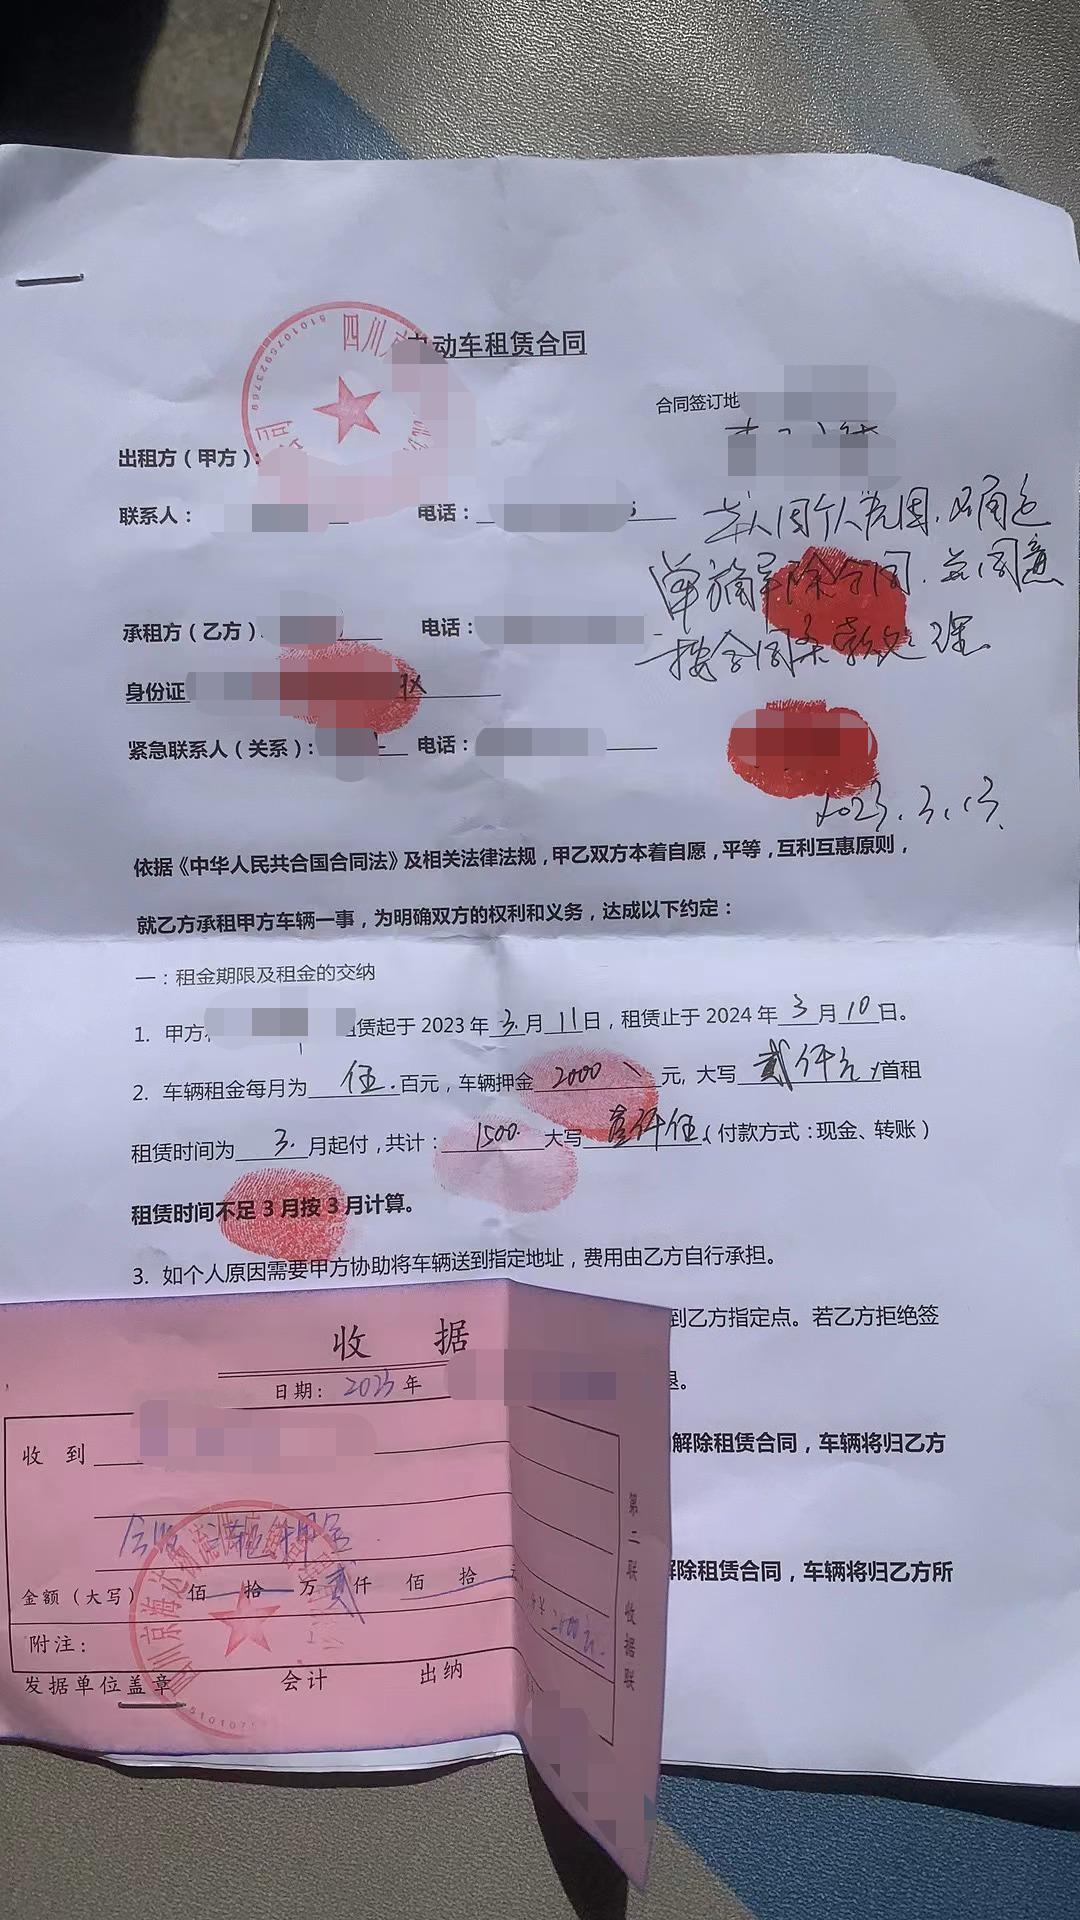 四川
5101075923769
动车租赁合同
合同签订地
出租方（甲方）：
联系人： 电话：
本人因个人原因，现确定
单方解除合同，并同意
按合同条款处理
承租方（乙方） 电话：
身份证
紧急联系人（关系）： 电话：
2023.3.13
依据《中华人民共合国合同法》及相关法律法规，甲乙双方本着自愿，平等，互利互惠原则，
就乙方承租甲方车辆一事，为明确双方的权利和义务，达成以下约定：
一：租金期限及租金的交纳
1. 甲方 租赁起于 2023 年 3 月 11 日，租赁止于 2024 年 3 月 10 日。
2. 车辆租金每月为 伍 百元，车辆押金 2000 元，大写 贰仟元 /首租
租赁时间为 3 月起付，共计： 1500 大写 壹仟伍 （付款方式：现金、转账）
租赁时间不足 3 月按 3 月计算。
3. 如个人原因需要甲方协助将车辆送到指定地址，费用由乙方自行承担。
到乙方指定点。若乙方拒绝签
退。
解除租赁合同，车辆将归乙方
解除租赁合同，车辆将归乙方所
收 据
日期： 2023 年
收 到
押金
金额（大写） 佰 拾 万 贰 仟 佰 拾 元
附注：
发据单位盖章 会计 出纳
第二联收据联
四川京海达物流
510107